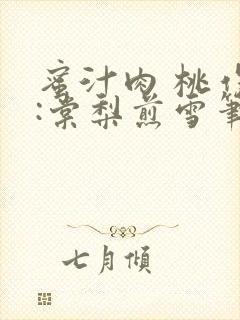 蜜汁肉桃作
:棠梨煎雪笔
七月傾